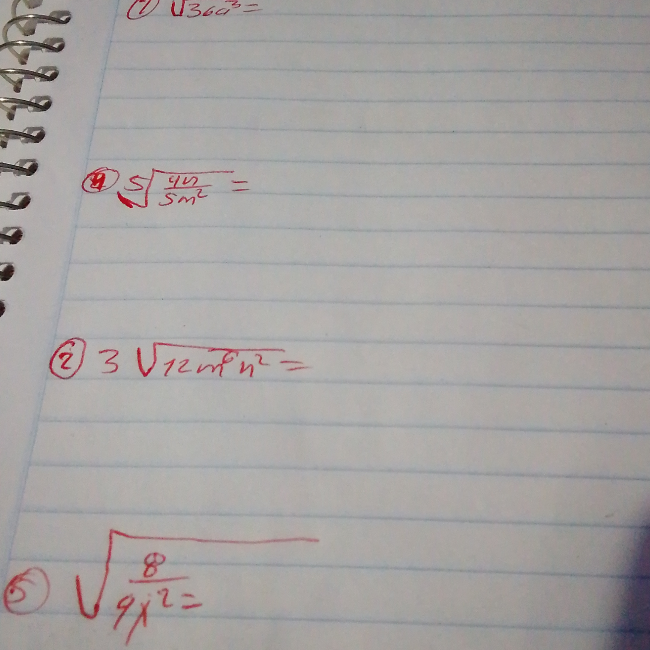 ① √36a³ =
④ 5√4n/5m² =
② 3 √12m⁸n² =
⑤ √8/9x² =